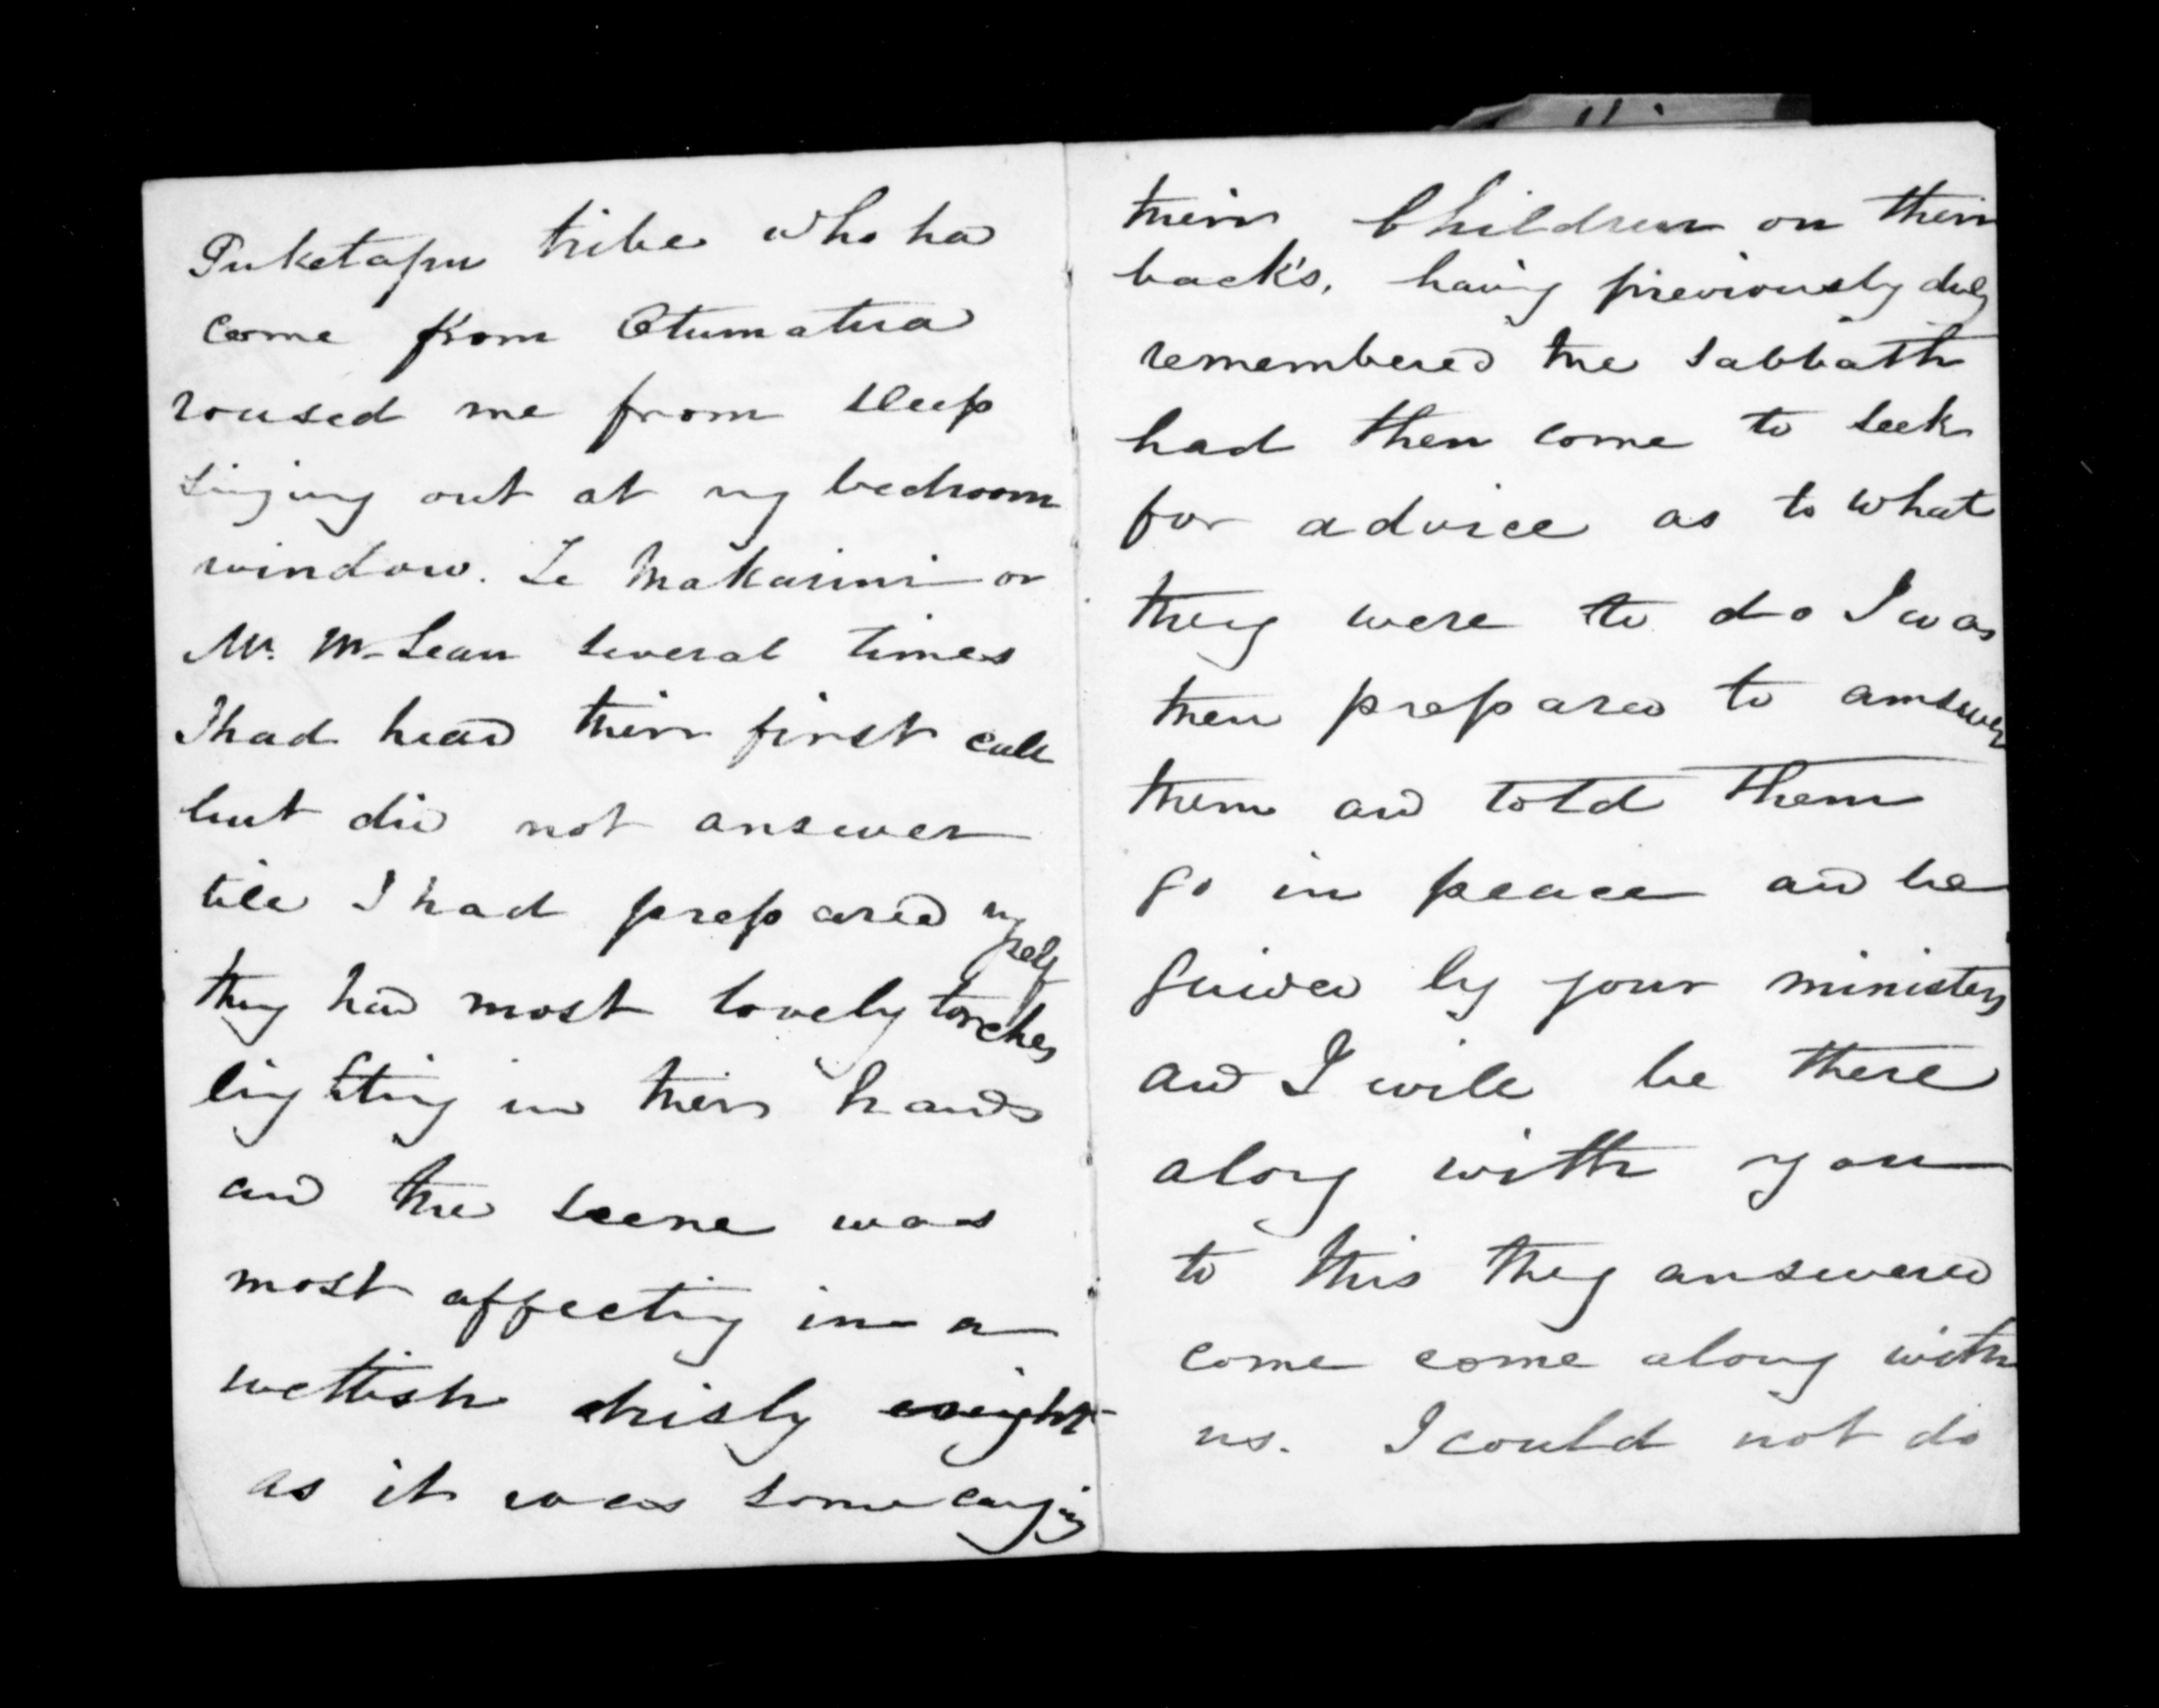 Puketapu tribe who had
come from Otumatua
roused me from sleep
singing out at my bedroom
window. Te Makarini or
Mr. McLean several times
I had heard their first call
but did not answer
till I had prepared myself
they had most lovely torches
lighting in their hands
and the scene was
most affecting in a
wettish drisly night
as it was some carying
their Children on their
back's, having previously duly
remembered the Sabbath
had then come to seek
for advice as to what
they were to do I was
then prepared to answer
them and told them
go in peace and be
guided by your ministers
and I will be there
along with you
to this they answered
come come along with
us. I could not do